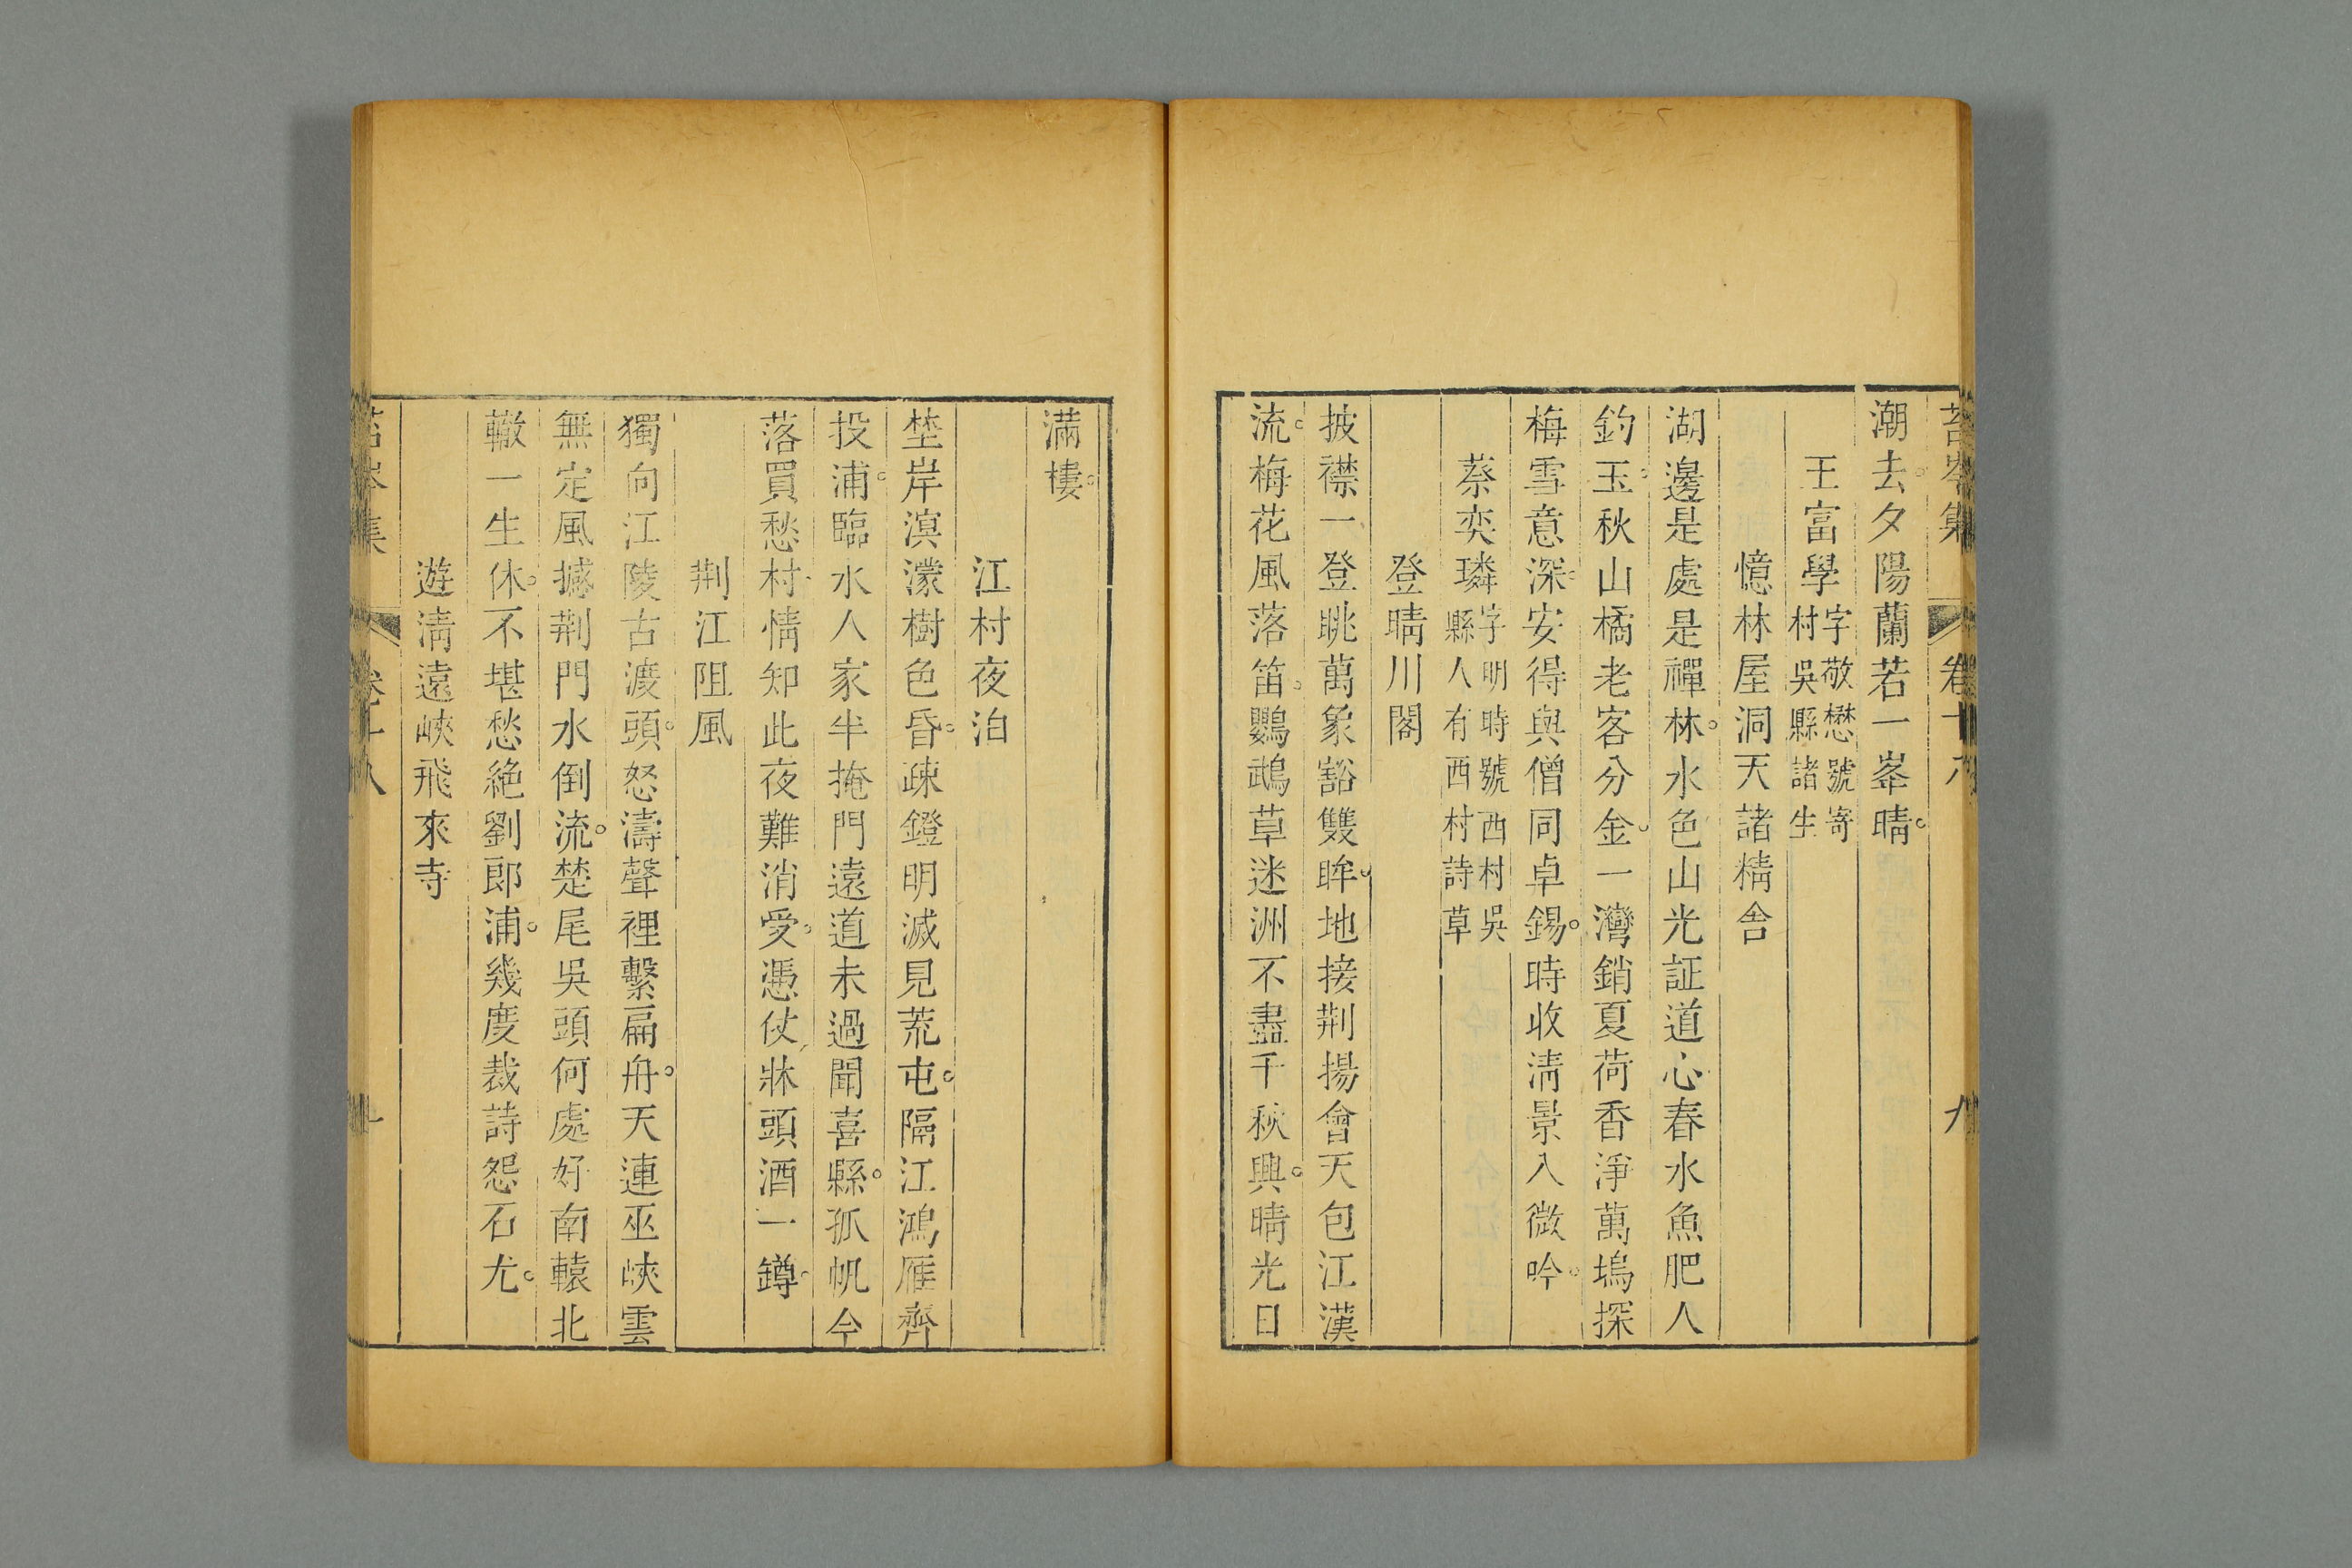 苔岑集 卷十八 九
潮去夕陽蘭若一峯晴。
王富學字敬懋號寄村吳縣諸生
憶林屋洞天諸精舍
湖邊是處是禪林。水色山光証道心春水魚肥人
釣玉。秋山橘老客分金。一灣銷夏荷香淨萬塢探
梅雪意深。安得與僧同卓錫。時收淸景入微吟。
蔡奕璘字明時號西村吳縣人有西村詩草
登晴川閣
披襟一登眺萬象豁雙眸。地接荆揚會天包江漢
流。梅花風落笛。鸚鵡草迷洲不盡千秋興。晴光日
滿樓。
江村夜泊
埜岸溟濛樹色昏。疎鐙明滅見荒屯。隔江鴻雁齊
投浦。臨水人家半掩門遠道未過聞喜縣。孤帆今
落買愁村。情知此夜難消受。憑仗牀頭酒一鐏。
荆江阻風
獨向江陵古渡頭。怒濤聲裡繫扁舟。天連巫峽雲
無定風撼荆門水倒流。楚尾吳頭何處好南轅北
轍一生休。不堪愁絶劉郎浦。幾度裁詩怨石尤。
遊淸遠峽飛來寺
苔岑集 卷十八